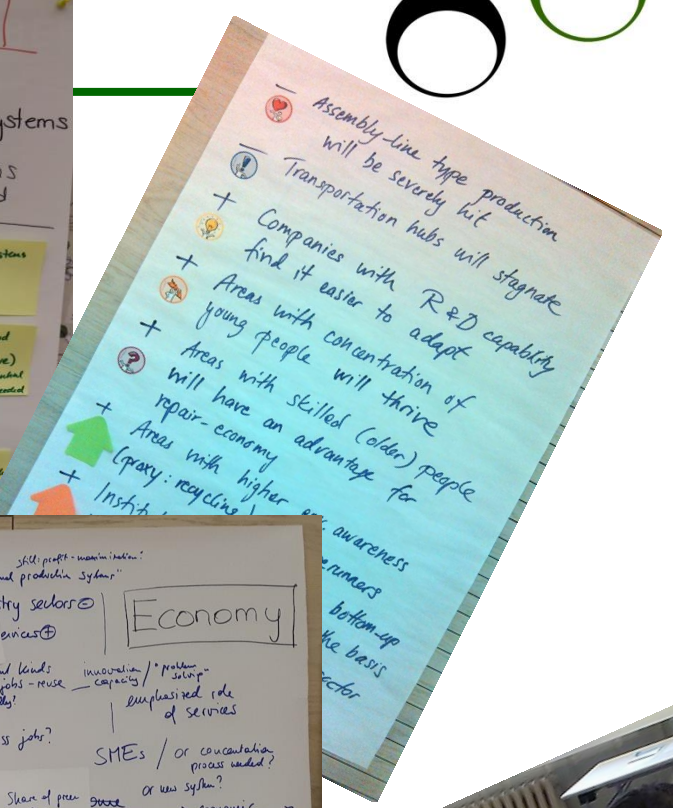 ystems
s
d
stems
d
ve)
needed
− Assembly-line type production
will be severely hit
− Transportation hubs will stagnate
+ Companies with R&D capability
find it easier to adapt
+ Areas with concentration of
young people will thrive
+ Areas with skilled (older) people
will have an advantage for
repair-economy
+ Areas with higher awareness
(proxy: recycling
erunners
+ Instit
bottom-up
the basis
ector
still: profit-maximization?
production systems"
try sectors ⊖
ervices ⊕
Economy
kinds
jobs - reuse
innovation capacity / "problem solving"
emphasized role
of services
ss jobs?
SMEs / or concentration
process needed?
or new system?
Share of green